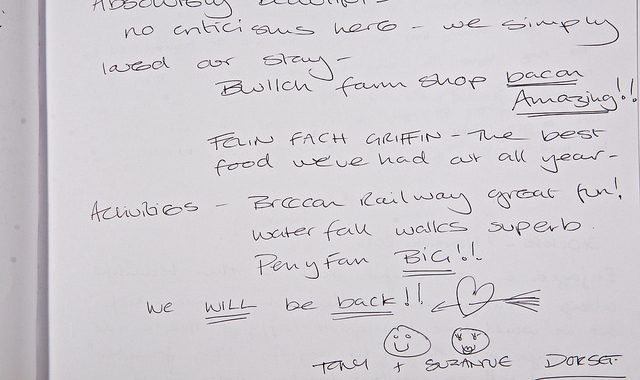 Absolutely beautiful -
no criticisms here - we simply
loved our stay -
Bwlch farm shop bacon
Amazing!!
FELIN FACH GRIFFIN - The best
food we've had at all year -
Activities - Breccan Railway great fun!
water fall walks superb.
Pen y Fan BIG!!
We WILL be back!!
TONY + SUZANNE DORSET